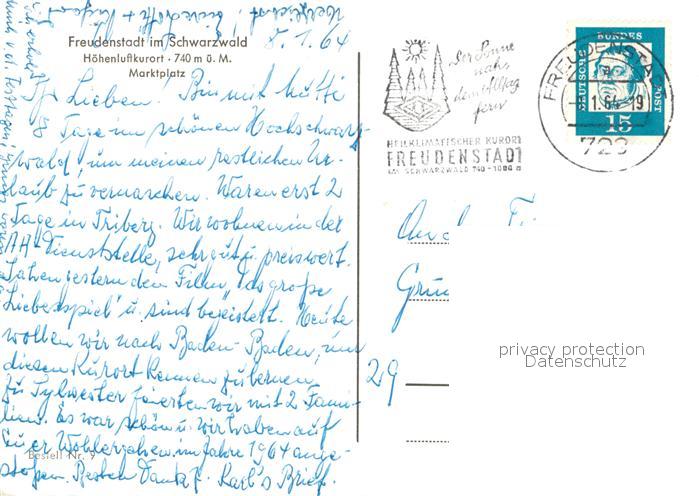 Freudenstadt im Schwarzwald
Höhenluftkurort · 740 m ü. M.
Marktplatz
8.1.64
Ihr Lieben! Bin mit Mutti
Tage im schönen Hochschwarz-
wald, um meinen restlichen Ur-
laub zu vernaschen. Waren erst 2
Tage in Triberg. Wir wohnen in der
Dienststelle, sehr gut u. preiswert.
Sahen gestern den Film, "das große
Liebesspiel" u. sind begeistert. Heute
wollen wir nach Baden-Baden, um
diesen Kurort kennen zu lernen.
Zu Sylwester feierten wir mit 2 Fami-
lien. Es war schön u. wir haben auf
Euer Wohlergehen im Jahre 1964 ange-
stoßen. Besten Dank f. Karl's Brief.
Bestell Nr. 9
Der Sonne
nah
dem Alltag
fern
HEILKLIMATISCHER KURORT
FREUDENSTADT
IM SCHWARZWALD 740-1000 m
DEUTSCHE BUNDESPOST
15
FREUDENSTADT
1.64-19
723
Gru
29
privacy protection
Datenschutz